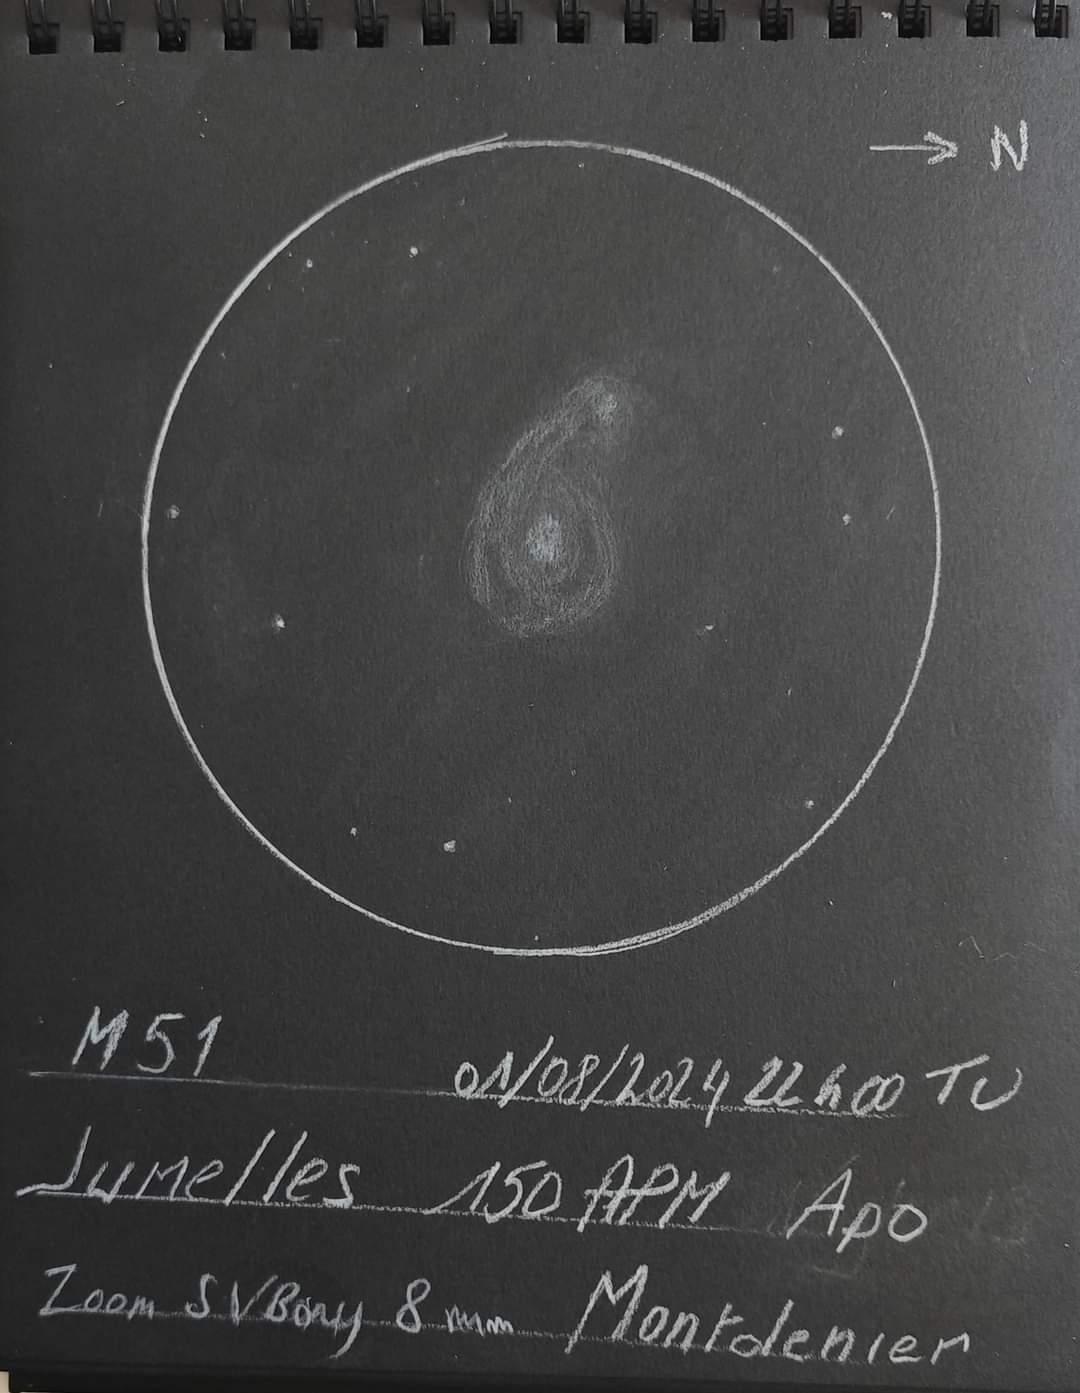 → N
M51
01/08/2024 22h00 TU
Jumelles 150 APM Apo
Zoom SVBony 8mm Montdenier